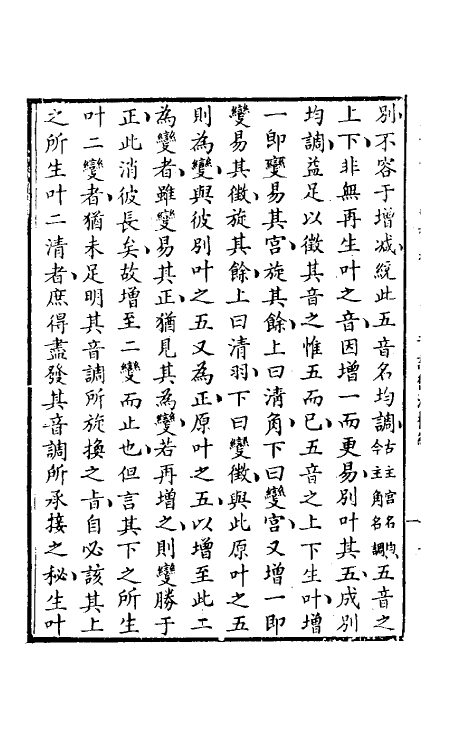 别不容于增减統此五音名均調古主宮名均今主角名調五音之
上下非無再生叶之音因增一而更易別叶其五成別
均調益足以徵其音之惟五而已五音之上下生叶增
一即變易其宮旋其餘上曰清角下曰變宮又增一即
變易其徵旋其餘上曰清羽下曰變徵與此原叶之五
則為變與彼別叶之五又為正原叶之五以增至此二
為變者雖變易其正猶見其為變若再增之則變勝于
正此消彼長矣故增至二變而止也但言其下之所生
叶二變者猶未足明其音調所旋換之旨自必該其上
之所生叶二清者庶得盡發其音調所承接之秘生叶